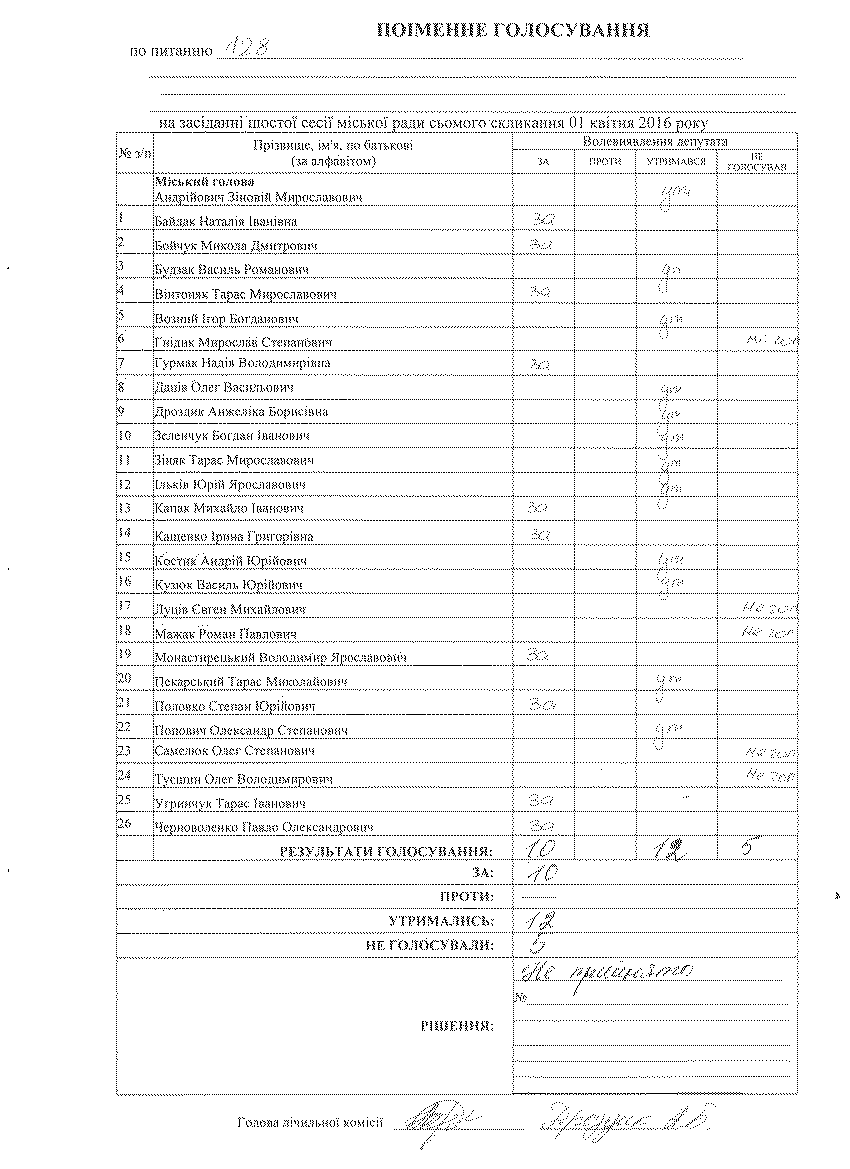 ПОІМЕННЕ ГОЛОСУВАННЯ
по питанню 128
на засіданні шостої сесії міської ради сьомого скликання 01 квітня 2016 року
№ з/п Прізвище, ім'я, по батькові (за алфавітом) Волевиявлення депутата
ЗА ПРОТИ УТРИМАВСЯ НЕ ГОЛОСУВАВ
Міський голова
Андрійович Зіновій Мирославович ут
1 Байдак Наталія Іванівна за
2 Бойчук Микола Дмитрович за
3 Будзак Василь Романович ут
4 Вінтоняк Тарас Мирославович за
5 Возний Ігор Богданович ут
6 Гнідик Мирослав Степанович не гол
7 Гурмак Надія Володимирівна за
8 Данів Олег Васильович ут
9 Дроздик Анжеліка Борисівна ут
10 Зеленчук Богдан Іванович ут
11 Зіняк Тарас Мирославович ут
12 Ільків Юрій Ярославович ут
13 Капак Михайло Іванович за
14 Кащевко Ірина Григорівна за
15 Костик Андрій Юрійович ут
16 Кузюк Василь Юрійович ут
17 Луців Євген Михайлович Не гол
18 Мажак Роман Павлович Не гол
19 Монастирецький Володимир Ярославович за
20 Пекарський Тарас Миколайович ут
21 Половко Степан Юрійович за
22 Попович Олександр Степанович ут
23 Самелюк Олег Степанович Не гол
24 Тусшин Олег Володимирович Не гол
25 Угринчук Тарас Іванович за
26 Черноволенко Павло Олександрович за
РЕЗУЛЬТАТИ ГОЛОСУВАННЯ: 10 12 5
ЗА: 10
ПРОТИ: —
УТРИМАЛИСЬ: 12
НЕ ГОЛОСУВАЛИ: 5
Не прийнято
№
РІШЕННЯ:
Голова лічильної комісії